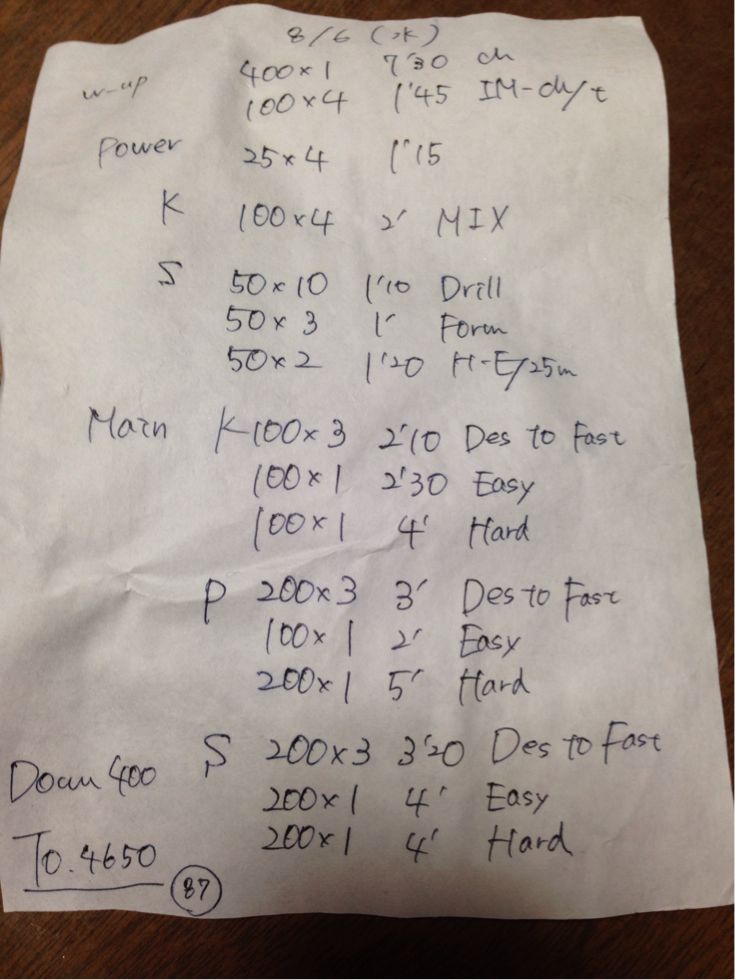 8/6 (水)
w-up 400×1 7'30 ch
100×4 1'45 IM-ch/t
Power 25×4 1'15
K 100×4 2' MIX
S 50×10 1'10 Drill
50×3 1' Form
50×2 1'20 H-E/25m
Main K 100×3 2'10 Des to Fast
100×1 2'30 Easy
100×1 4' Hard
P 200×3 3' Des to Fast
100×1 2' Easy
200×1 5' Hard
S 200×3 3'20 Des to Fast
Down 400
200×1 4' Easy
200×1 4' Hard
To. 4650
87